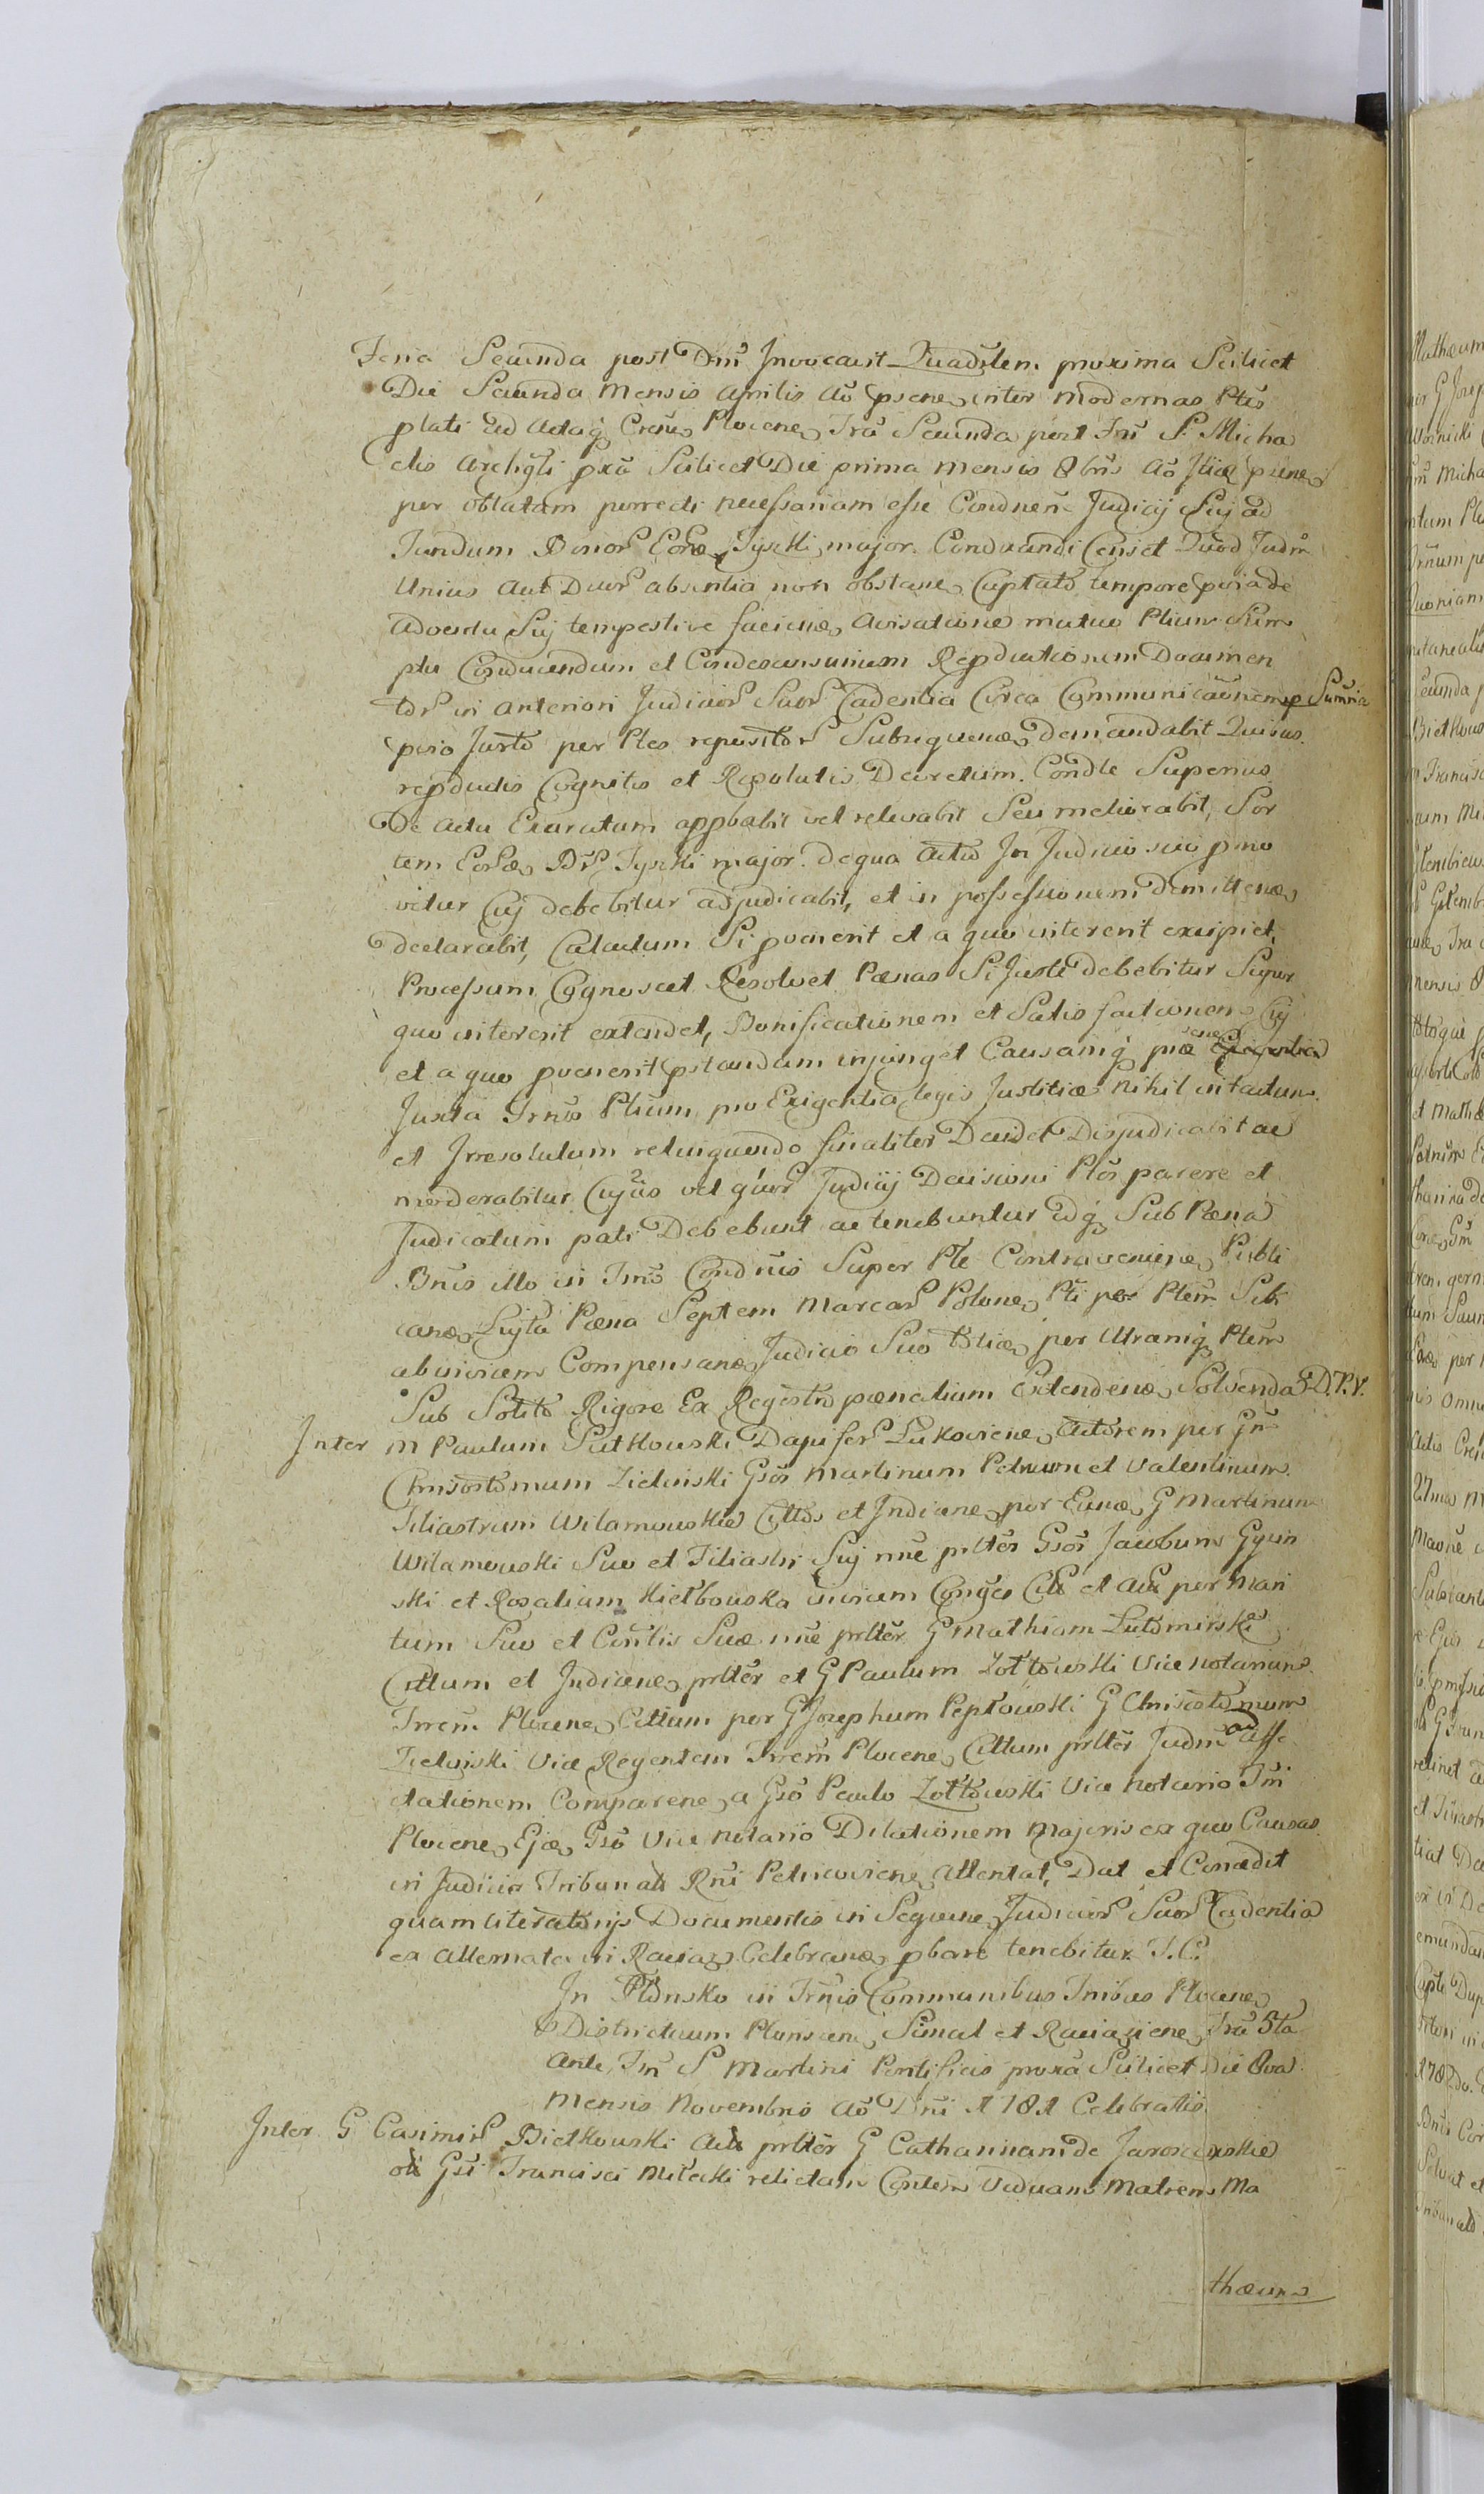 Feria Secunda post Dm̃ Invocavit Quadr̃lem proxima Scilicet
Die Secunda Mensis Aprilis Aõ psene, inter modernas Ptes
plati Ad Actaq́ Crene, Plocene, Frã Secunda post Fm̃ S. Micha
elis Archgli pxã Scilicet Die prima Mensis 8bris Aõ psene,
per oblatam porrecti necessariam esse Condnem̃ Judicij Sui ad
Fundum Bonor̃ Tyszki major. Conducendi Censet Quod Judm̃
Unius Aut Duor̃ absentia non obstane, Captato tempore pviade
Adventu Suj tempestive faciene, Avisatione mutuo Ptium Sum
ptu Conducendum et Condescensurum Reproductionem Documen
tor̃ in anteriori Judicior̃ Suor̃ Cadentia Circa Communicationem Sumria
pvio Jurto per Ptes repositor̃ Subsequene, demandabit Quibus
repductis Cognitis et Resolutis Decretum. Condle Superius
De Actu Exaratum appbabit vel relevabit Seu meliorabit, Sor
tem Tyszki major. de qua Actio In Judicio suo pmo
vetur Cuj debebitur adjudicabit, et in possessionem Dimittene,
declarabit, Calculum Si pvenerit et a quo intererit excipiet,
Processum Cognoscet Resolvet Pænas Si Juste debebitur Super
quo intererit extendet, Bonificationem et Satis factionem Cuj
et a quo pvenerit pstandam injunget Causamq́
Juxta Trm̃s Ptium pro Exigentia legis Justitiæ nihil intactum
et Irresolutum relinquendo finaliter Decidet Disjudicabit ac
moderabitur Cujus vel quor̃ Judicij Decisioni Ptes parere et
Judicatum pati Debebunt ac tenebuntur Idq́ Sub Pæna
Bnis illo in Trm̃o Condnis Super Pte Contraveniene, Publi
cane, Luyta Pæna Septem Marcar̃ Polone, Pti per Ptem̃ Sibi
abinvicem Compensane, Judicio Suo per Utramq́ Ptem̃
Sub Solito Rigore Ex Regestro pænalium Extendene, Solvenda D.P.V.
Inter M Paulum Sutkowski Dapifer̃ Lukoviene, Actorem per Gm̃
Chrisostomum Zielinski Gsos Martinum Petrum et Valentinum
Filiastrum Wilamowskie Cittos et Indicene, per Eund, G Martinum
Wilamowski Suo et Filiastri Suj nne prltõr Gsos Jacobum
ski et Rosaliam Kiełbowska invicem Conges et per Mari
tum Suo et Contis Suæ nne prltõr G Mathiam Lutomirski
Cittum et Indicene, prltõr et G Paulum Zołtowski Vice Notarium
Trrem̃ Plocene, Cittum per G Josephum Pepłowski G Chrisostomum
Zielinski Vice Regentem Trrem̃ Plocene, Cittum prltõr Judm̃ ad Affe
ctationem Comparene, a Gso Paulo Zołtowski Vice Notario Trri
Plocene, Gso Vice Notario Dilationem Majoris ex quo Causas
in Judicio Tribunali Rni Petricoviene, Attentat, Dat et Concedit
quam literatorijs Documentis in Sequene, Judicior̃ Suor̃ Cadentia
ex alternata in Raciąz, Celebrane, pbare tenebitur. T.C.
In Płonsko in Trm̃is Communibus Trribus Plocene,
Districtuum Plonscene, Simul et Raciązene, Frã 5ta
Ante Fm̃ S Martini Pontificis proxã Scilicet Die 8va
Mensis Novembris Aõ Dni 1781 Celebratis
Inter G Casimir̃ Bietkowski prltõr G Catharinam de
Gsi Francisci Miłecki relictam Contem Viduam Matrem Ma
thæum